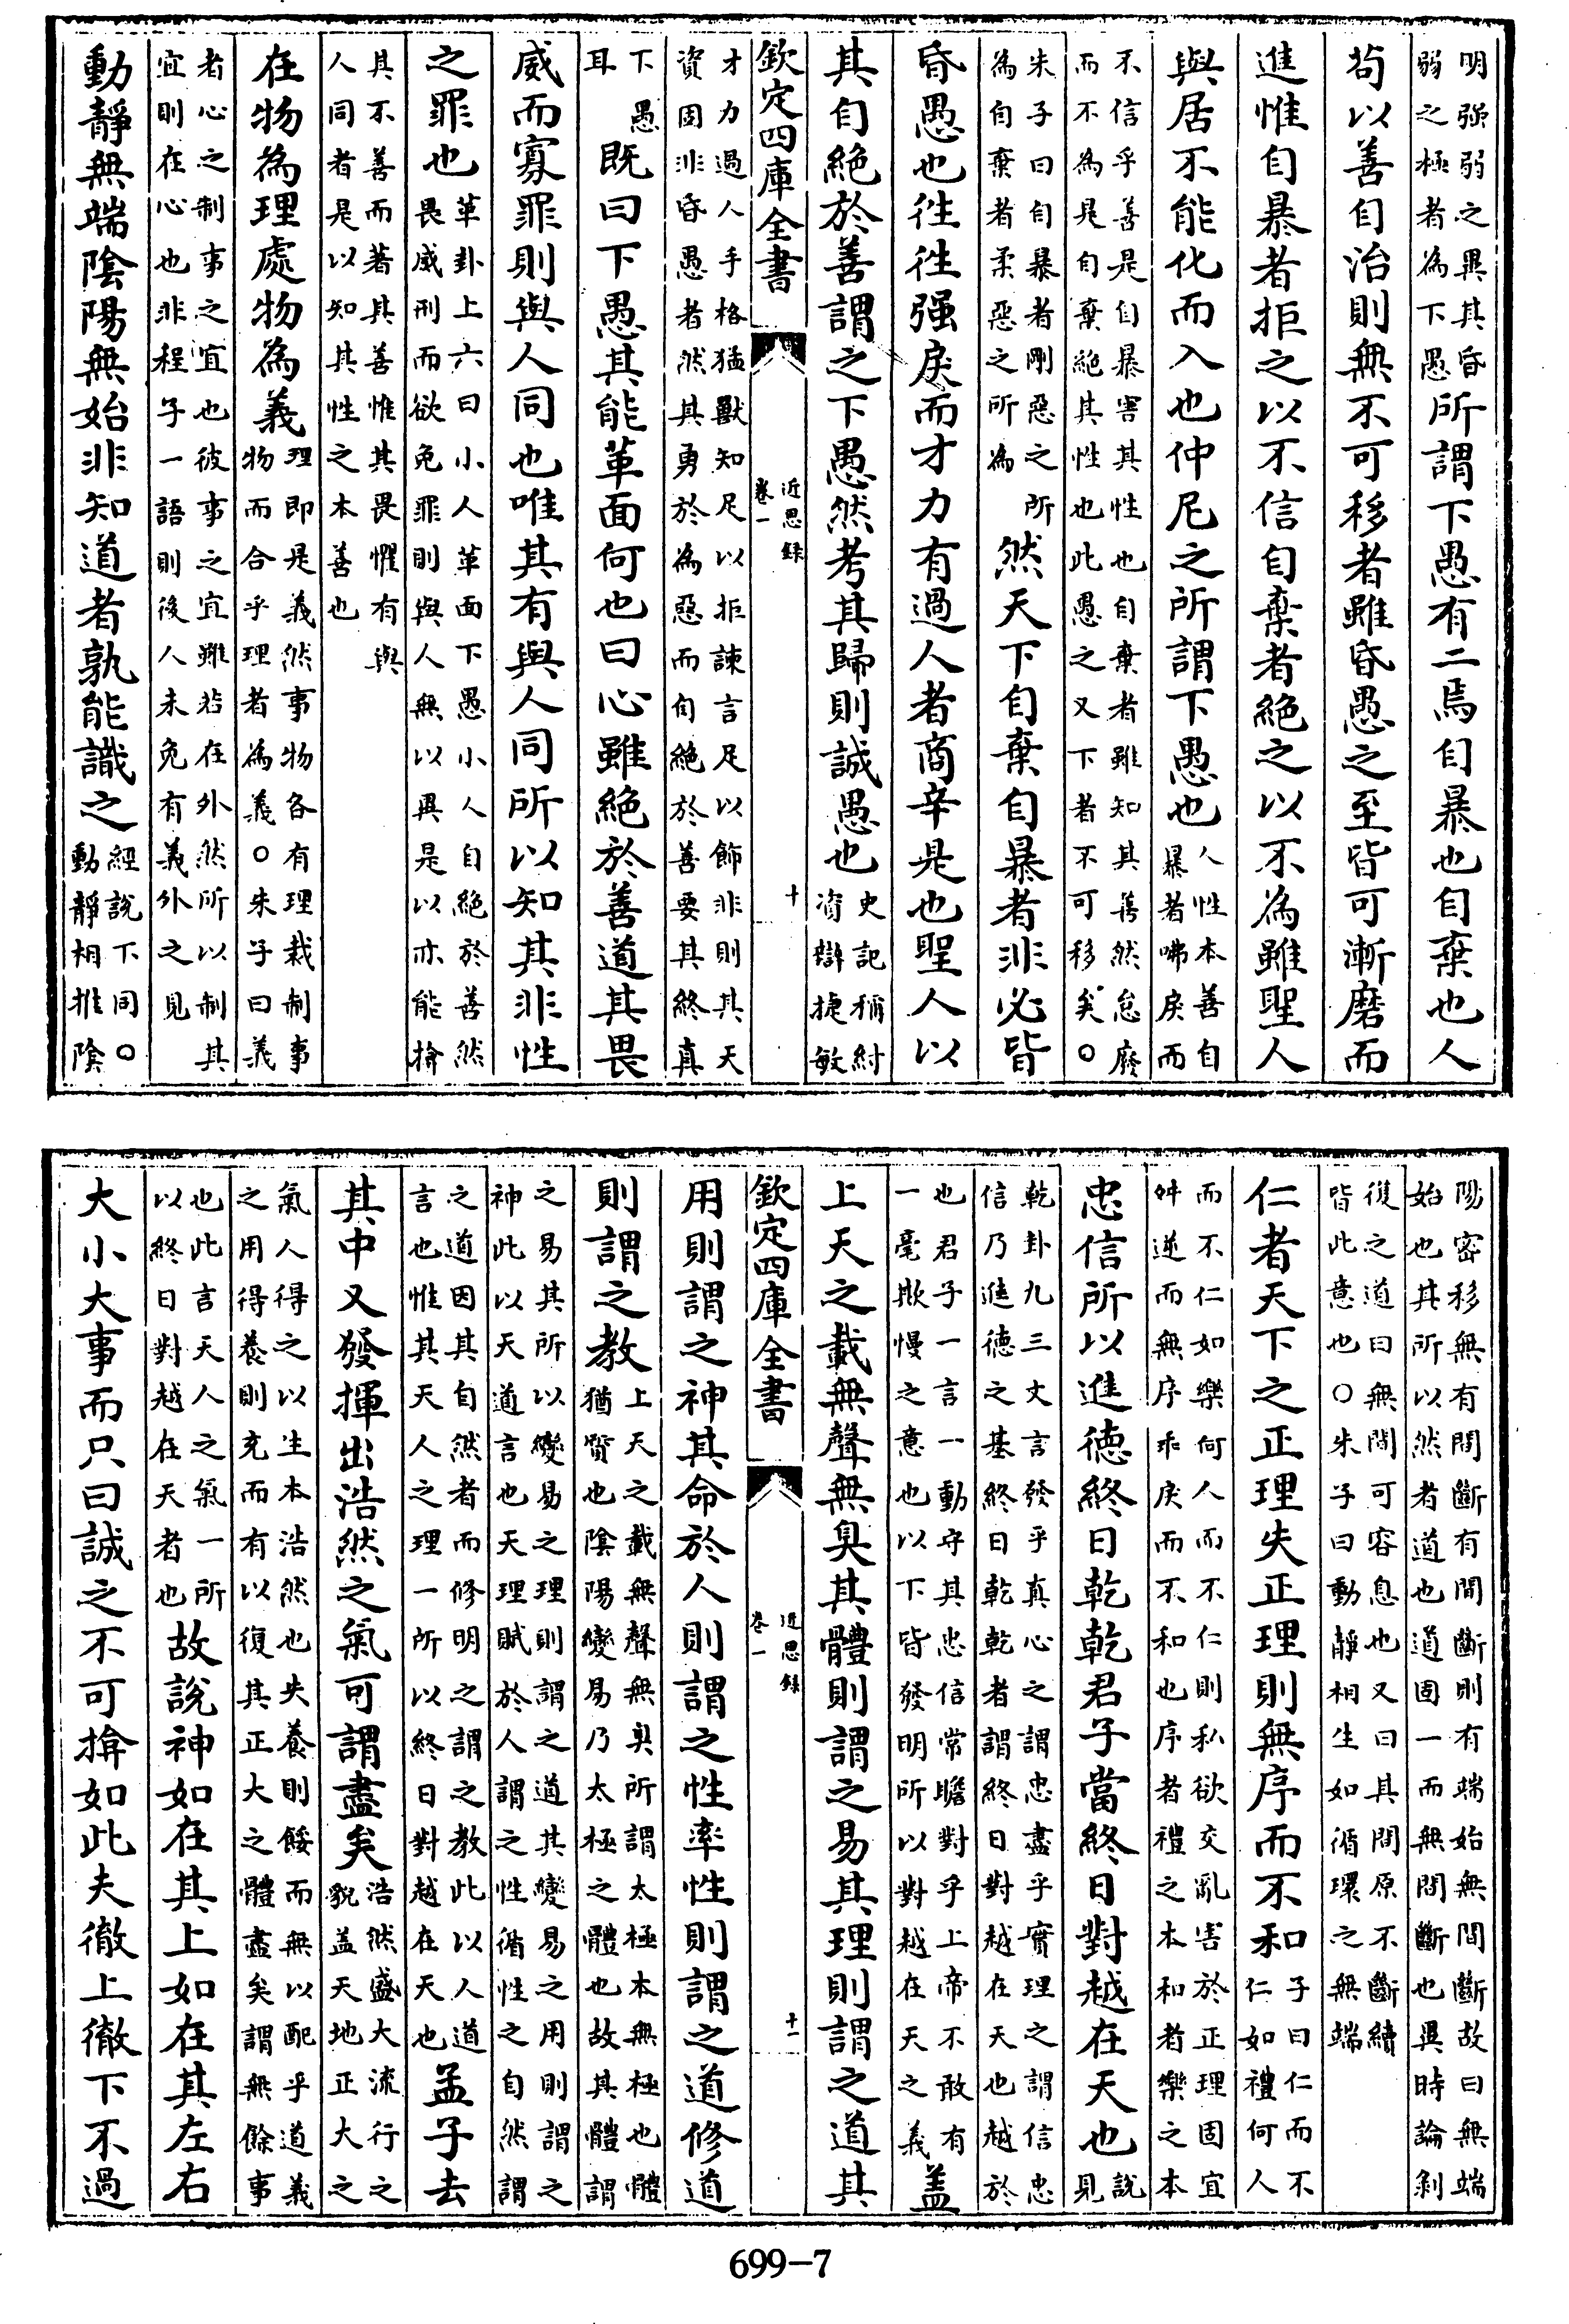 明强弱之異其昏弱之極者為下愚所謂下愚有二焉自暴也自棄也人
苟以善自治則無不可移者雖昏愚之至皆可漸磨而
進惟自暴者拒之以不信自棄者絶之以不為雖聖人
與居不能化而入也仲尼之所謂下愚也人性本善自暴者咈戾而
不信乎善是自暴害其性也自棄者雖知其善然怠廢
而不為是自棄絶其性也此愚之又下者不可移矣○
朱子曰自暴者剛惡之所為自棄者柔惡之所為然天下自棄自暴者非必皆
昏愚也往往强戾而才力有過人者商辛是也聖人以
其自絶於善謂之下愚然考其歸則誠愚也史記稱紂資辯捷敏
欽定四庫全書
近思録
卷一
十
才力過人手格猛獸知足以拒諫言足以飾非則其天
資固非昏愚者然其勇於為惡而自絶於善要其終真
下愚耳既曰下愚其能革面何也曰心雖絶於善道其畏
威而寡罪則與人同也唯其有與人同所以知其非性
之罪也革卦上六曰小人革面下愚小人自絶於善然畏威刑而欲免罪則與人無以異是以亦能揜
其不善而著其善惟其畏懼有與
人同者是以知其性之本善也
在物為理處物為義理即是義然事物各有理裁制事物而合乎理者為義○朱子曰義
者心之制事之宜也彼事之宜雖若在外然所以制其
宜則在心也非程子一語則後人未免有義外之見
動靜無端陰陽無始非知道者孰能識之經說下同○動靜相推陰
陽密移無有間斷有間斷則有端始無間斷故曰無端
始也其所以然者道也道固一而無間斷也異時論剝
復之道曰無間可容息也又曰其間原不斷續
皆此意也○朱子曰動靜相生如循環之無端
仁者天下之正理失正理則無序而不和子曰仁而不仁如禮何人
而不仁如樂何人而不仁則私欲交亂害於正理固宜
舛逆而無序乖戾而不和也序者禮之本和者樂之本
忠信所以進德終日乾乾君子當終日對越在天也說見
乾卦九三文言發乎真心之謂忠盡乎實理之謂信忠
信乃進德之基終日乾乾者謂終日對越在天也越於
也君子一言一動守其忠信常瞻對乎上帝不敢有
一毫欺慢之意也以下皆發明所以對越在天之義蓋
上天之載無聲無臭其體則謂之易其理則謂之道其
欽定四庫全書
近思録
卷一
十一
用則謂之神其命於人則謂之性率性則謂之道修道
則謂之教上天之載無聲無臭所謂太極本無極也體猶質也陰陽變易乃太極之體也故其體謂
之易其所以變易之理則謂之道其變易之用則謂之
神此以天道言也天理賦於人謂之性循性之自然謂
之道因其自然者而修明之謂之教此以人道
言也惟其天人之理一所以終日對越在天也孟子去
其中又發揮出浩然之氣可謂盡矣浩然盛大流行之貌蓋天地正大之
氣人得之以生本浩然也失養則餒而無以配乎道義
之用得養則充而有以復其正大之體盡矣謂無餘事
也此言天人之氣一所
以終日對越在天者也故說神如在其上如在其左右
大小大事而只曰誠之不可揜如此夫徹上徹下不過
699-7